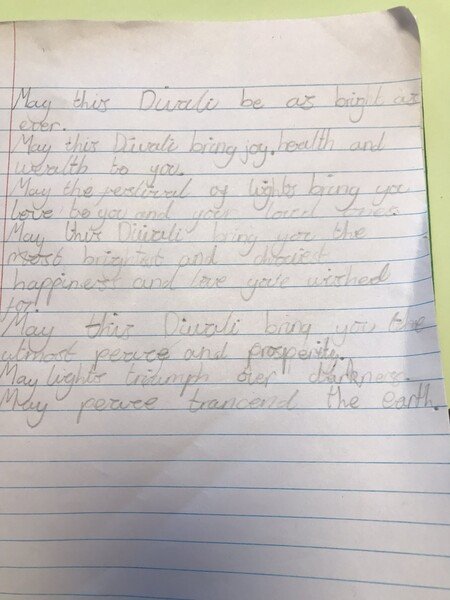 May this Diwali be as bright as
ever.
May this Diwali bring joy, health and
wealth to you.
May the festival of lights bring you
love to you and your loved ones
May this Diwali bring you the
most brightest and
happiness and love you've wished
for.
May this Diwali bring you the
utmost peace and prosperity.
May lights triumph over darkness.
May peace trancend the earth.